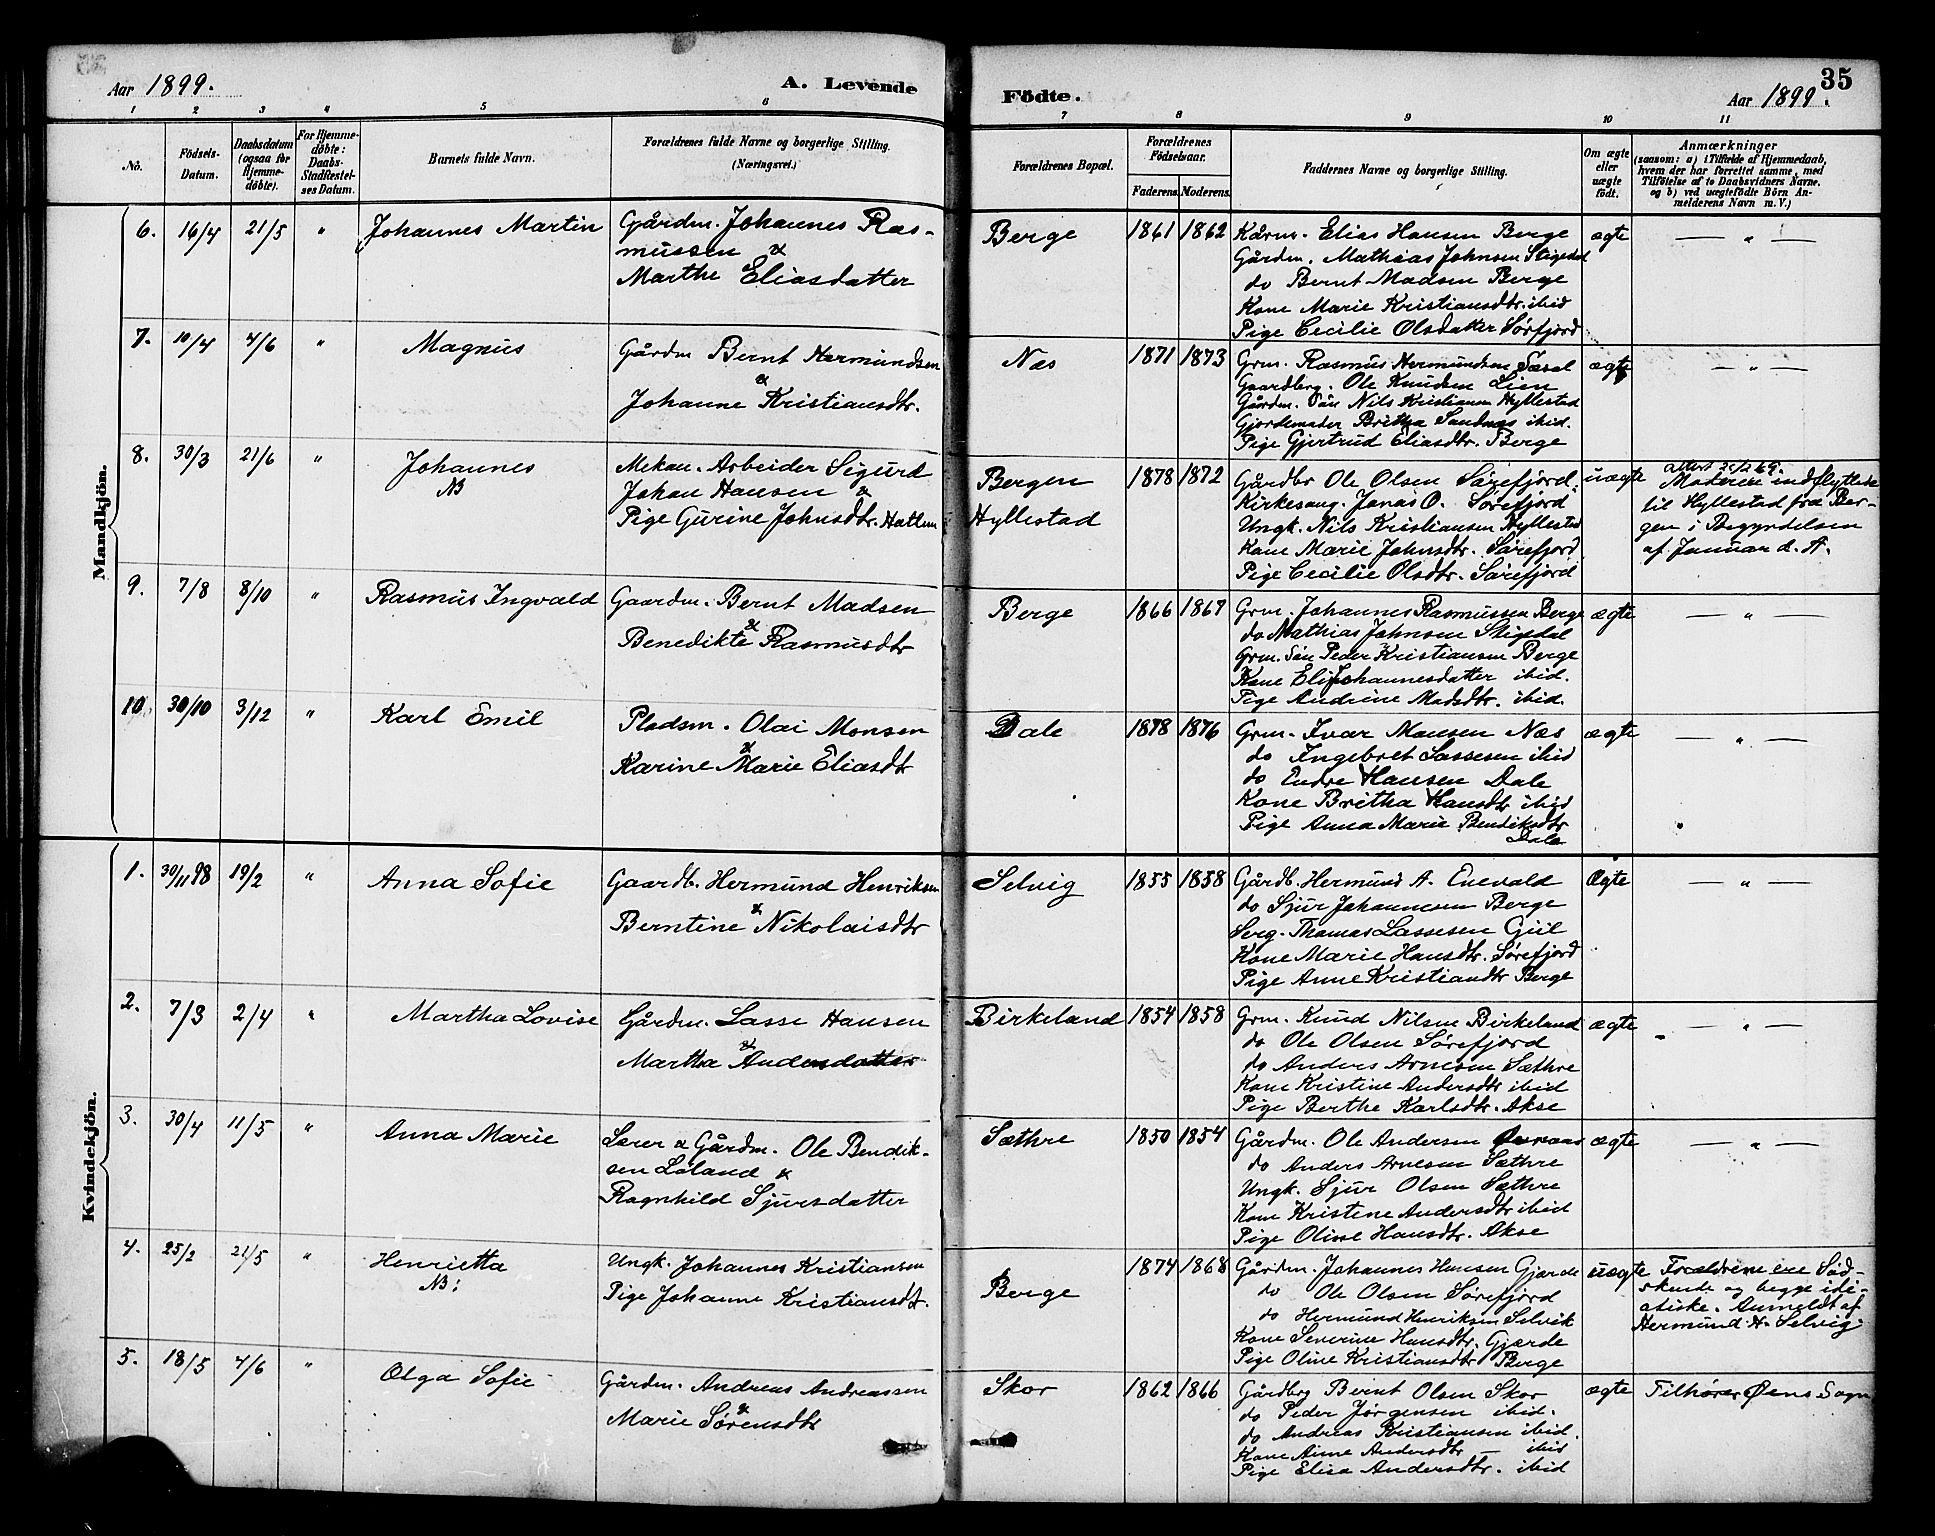 Aar 1899.
A. Levende
Födte.
Aar 1899.
35
1 2 3 4 5 6 7 8 9 10 11
No.
Födsels-
Datum.
Daabsdatum
(ogsaa for
Hjemme-
döbte).
For Hjemme-
döbte:
Daabs-
Stadfæstel-
ses Datum.
Barnets fulde Navn.
Forældrenes fulde Navne og borgerlige Stilling.
(Næringsvei.)
Forældrenes Bopæl.
Forældrenes
Födselsaar.
Faderens. Moderens.
Faddernes Navne og borgerlige Stilling.
Om ægte
eller
uægte
födt.
Anmærkninger
(saasom: a) i Tilfælde af Hjemmedaab,
hvem der har forrettet samme, med
Tilföielse af to Daabsvidners Navne.
og b) ved uægtefödte Börn An-
melderens Navn m. V.)
Mandkjön.
6. 16/4 21/5 " Johannes Martin
Gårdm. Johannes Ras-
mussen &
Marthe Eliasdatter
Berge 1861 1862
Kårm. Elias Hansen Berge
Gårdm. Mathias Johnsen Stigedal
do Bernt Madsen Berge
Kone Marie Kristiansdtr. ibid
Pige Cecilie Olsdatter Sørfjord
ægte
— " —
7. 10/4 4/6 " Magnus
Gårdm Bernt Hermundsen
&
Johanne Kristiansdtr.
Næs 1871 1873
Grm. Rasmus Hermundsen
Gaardbrg. Ole Knudsen Lien
Gårdm. Søn Nils Kristiansen Hyllestad
Gjordemoder Britha Sandnæs ibid.
Pige Gjertrud Eliasdtr. Berge
ægte
— " —
8. 30/3 21/6 " Johannes
NB
Mekan. Arbeider Sigurd
Johan Hansen &
Pige Gurine Johnsdtr. Hatlem
Bergen
Hyllestad
1878 1872
Gårdbr Ole Olsen Sørefjord.
Kirkesang. Jonas O. Sørefjord
Ungk. Nils Kristiansen Hyllestad
Kone Marie Johnsdtr. Sørefjord
Pige Cecilie Olsdtr. Sørefjord
uægte
Moderen indflyttede
til Hyllestad fra Ber-
gen i Begyndelsen
af Januar d. A.
9. 7/8 8/10 " Rasmus Ingvald
Gaardm. Bernt Madsen
&
Benedikte Rasmusdtr
Berge 1866 1867
Grm. Johannes Rasmussen Berge
do Mathias Johnsen Stigedal
Grm. Søn Peder Kristiansen Berge
Kone Eli Johannesdatter ibid.
Pige Andrine Madsdtr. ibid.
ægte
— " —
10. 30/10 3/12 " Karl Emil
Pladsm. Olai Monsen
&
Karine Marie Eliasdtr
Dale 1878 1876
Grm. Ivar Monsen Næs
do Ingebret Lassesen ibid
do Endre Hansen Dale
Kone Britha Hansdtr ibid
Pige Anna Marie Bendiksdtr
Dale
ægte
— " —
Kvindekjön.
1. 30/11 98 19/2 " Anna Sofie
Gaardb. Hermund Henriksen
&
Berntine Nikolaisdtr
Selvig 1855 1858
Gårdb. Hermund A. Enevald
do Sjur Johannesen Berge
Serg. Thomas Lassesen Gjil
Kone Marie Hansdtr. Sørefjord
Pige Anne Kristiansdtr Berge
Ægte
— " —
2. 7/3 2/4 " Martha Lovise
Gårdm. Lasse Hansen
&
Martha Andersdatter
Birkeland 1854 1858
Grm. Knud Nilsen Birkeland
do Ole Olsen Sørefjord
do Anders Arnesen Sæthre
Kone Kristine Andersdtr ibid
Pige Berthe Karlsdtr. Akse
ægte
— " —
3. 30/4 11/5 " Anna Marie
Lærer & Gårdm. Ole Bendik-
sen Løland &
Ragnhild Sjursdatter
Sæthre 1850 1854
Gårdm. Ole Andersen
do Anders Arnesen Sæthre
Ungk. Sjur Olsen Sæthre
Kone Kristene Andersdtr ibid
Pige Oline Hansdtr. Akse
ægte
— " —
4. 25/2 21/5 " Henrietta
NB:
Ungk. Johannes Kristiansen
Pige Johanne Kristiansdtr.
Berge
1874 1868
Gårdm. Johannes Hansen Gjærde
do Ole Olsen Sørefjord
do Hermund Henriksen Selvik
Kone Severine Hansdtr. Gjærde
Pige Oline Kristiansdtr Berge
uægte
Forældrene ere Sød-
skende og begge idi-
otiske. Anmeldt af
Hermund H. Selvig.
5. 18/5 4/6 " Olga Sofie
Gårdm. Andreas Andreassen
&
Marie Sørensdtr
Skor 1862 1866
Gårdbrg Bernt Olsen Skor
do Peder Jørgensen ibid.
do Andreas Kristiansen ibid.
Kone Anne Andersdtr — ibid
Pige Elisa Andersdtr. ibid
ægte
Tilhører Øens Sogn